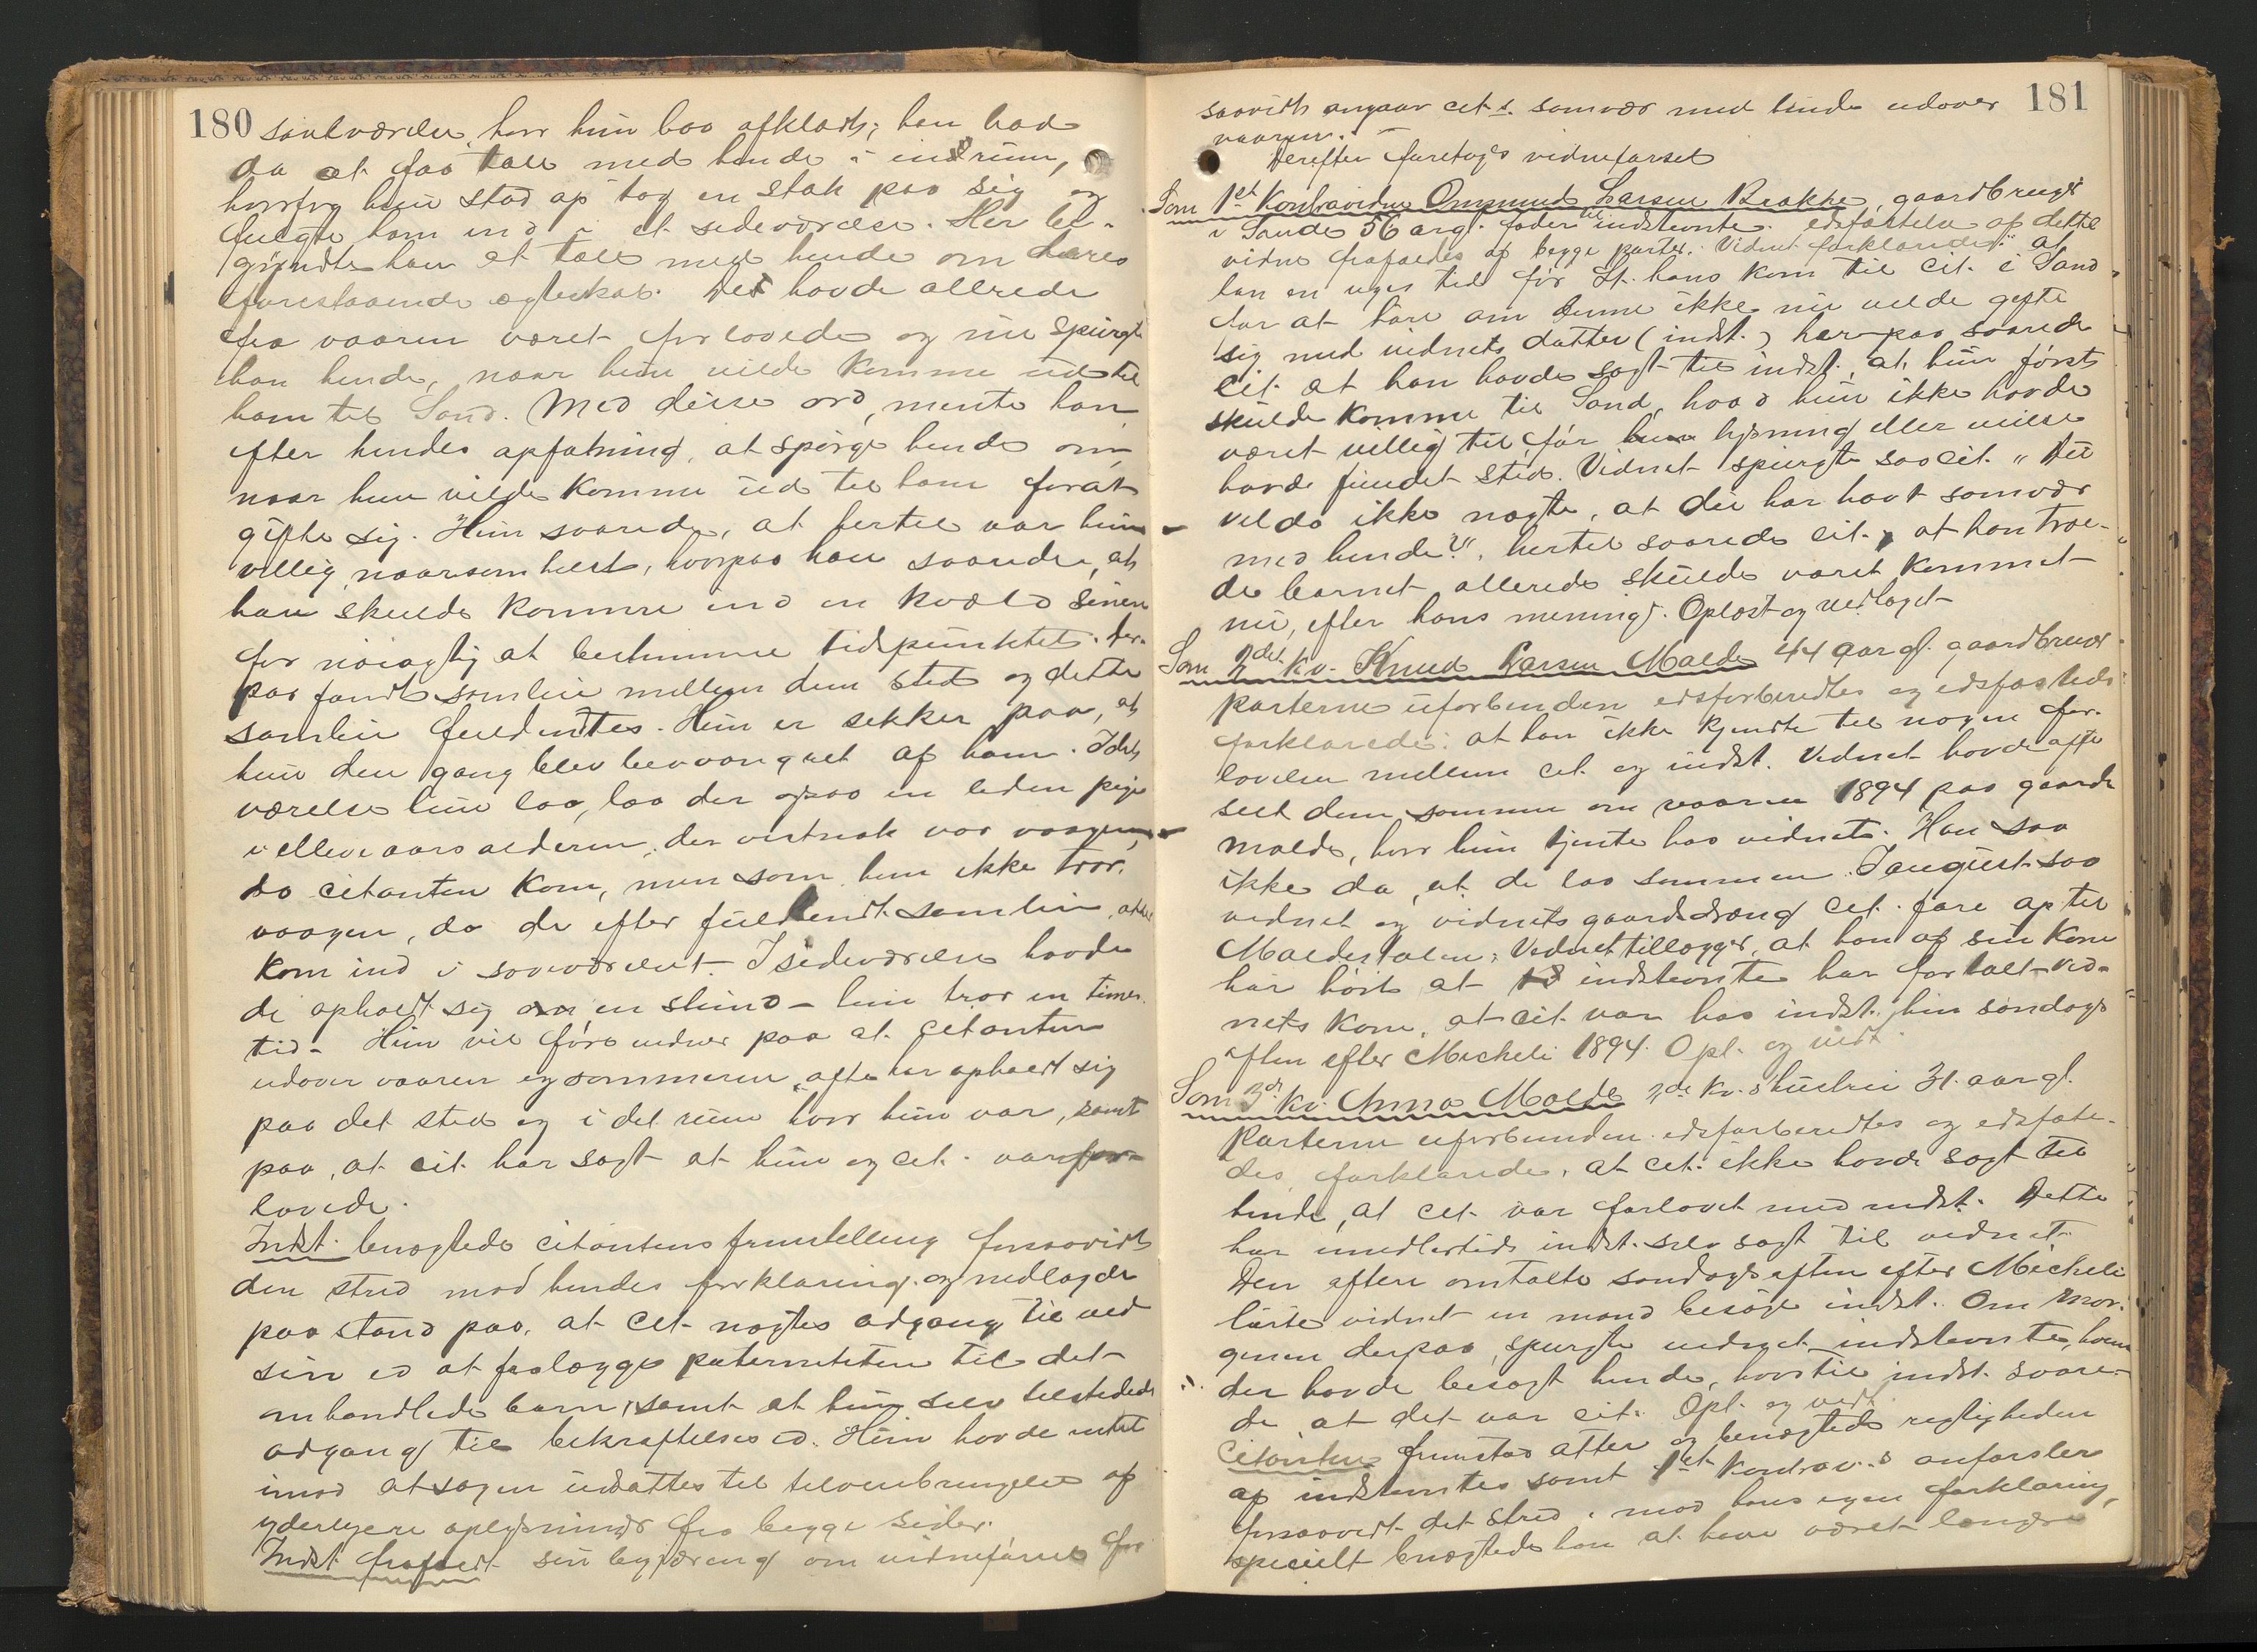 180
soveværelse, hvor hun laa afklædt; han bad
da at faa tale med hende i enrum,
hvorfor hun stod op tog en stak paa sig og
fulgte ham ind i et sideværelse. Her be-
gyndte han at tale med hende om deres
forestaaende ægteskab. De havde allerede
fra vaaren været forlovede og nu spurgte
han hende, naar hun vilde komme ud til
ham til Sand. Med disse ord, mente han,
efter hendes opfatning, at spørge hende om,
naar hun vilde komme ud til ham forat
gifte sig. Hun svarede, at hertil var hun
villig, naarsomhelst, hvorpaa han svarede, at
han skulde komme ind en kvæld senere
for nøiagtig at bestemme tidspunktet. Der-
paa fandt samleie mellem dem sted og dette
samleie fuldendtes. Hun er sikker paa, at
hun den gang blev besvangret af ham. I det
værelse hun laa, laa der ogsaa en liden pige
i elleveaarsalderen, der vistnok var vaagen,
da citanten kom, men som hun ikke tror
vaagen, da de efter fuldendt samleie, atter
kom ind i soveværelset. I sideværelse havde
de opholdt sig en stund - hun tror en times
tid. - Hun vil føre vidner paa at citanten
udover vaaren og sommeren ofte har opholdt sig
paa det sted og i det rum hvor hun var, samt
paa, at cit. har sagt at hun og cit. var for-
lovede.
Indst. benægtede citantens fremstilling forsaavidt
den stred mod hendes forklaring og nedlagde
paastand paa, at cit. nægtes adgang til ved
sin ed at fralægge paterniteten til det
omhandlede barn, samt at hun selv tilstededes
adgang til bekræftelsesed. Hun havde intet
imod at sagen udsattes til tilveiebringelse af
yderligere oplysninger fra begge sider.
Indst. frafaldt sin begjæring om vidneførsel for
181
saavidt angaar cit.s samvær med hende udover
vaaren.
Derefter foretoges vidneførsel
Som 1ste Kontravidne Ommund Larsen Brække, gaardbruger
i Sande 56 aar gl. fader til indstevnte. edfæstelse af dette
vidne frafaldes af begge parter. Vidnet forklarede: at
han en uges tid før St. hans kom til cit. i Sand
for at høre om denne ikke nu vilde gifte
sig med vidnets datter (indst.) herpaa svarede
cit. at han havde sagt til indst., at hun først
skulde komme til Sand, hvad hun ikke havde
været villig til, før lysning eller vielse
havde fundet sted. Vidnet spurgte saa cit. „Du
vil da ikke nægte, at du har havt samvær
med hende?", hertil svarede cit., at han troe-
de barnet allerede skulde været kommet
nu, efter hans mening. Oplæst og vedtaget
Som 2det kv. Knud Larsen Malde 44 aar gl. gaardbruger
parterne uforbunden edsforberedtes og edfæstedes
forklarede: at han ikke kjendte til nogen for-
lovelse mellem cit. og indst. Vidnet havde ofte
seet dem sammen om vaaren 1894 paa gaarden
Malde, hvor hun tjente hos vidnet. Han saa
ikke da, at de laa sammen. I august saa
vidnet og vidnets gaardsdreng cit. fare op til
Maldestølen; Vidnet tillægger, at han af sin kone
har hørt at indstevnte har fortalt vid-
nets kone, at cit. var hos indst. hin søndags
aften efter Micheli 1894. Opl. og vedt.
Som 3die kv. Anna Malde 2det kv.s hustru 31 aar gl.
parterne uforbunden edsforberedtes og edsfæste-
des, forklarede, at cit. ikke havde sagt til
hende, at cit. var forlovet med indst. Dette
har imidlertid indst. selv sagt til vidnet.
Den oftere omtalte søndagsaften efter Micheli
hørte vidnet en mand besøge indst. Om mor-
genen derpaa, spurgte vidnet indstevnte, hvem
der havde besøgt hende, hvortil indst. svare-
de at det var cit. Opl. og vedt.
Citanten fremstod atter og benægtede rigtigheden
af indstevntes samt 1ste kontrav.s anførsler
forsaavidt det stred mod hans egen forklaring,
specielt benægtede han at have været længere